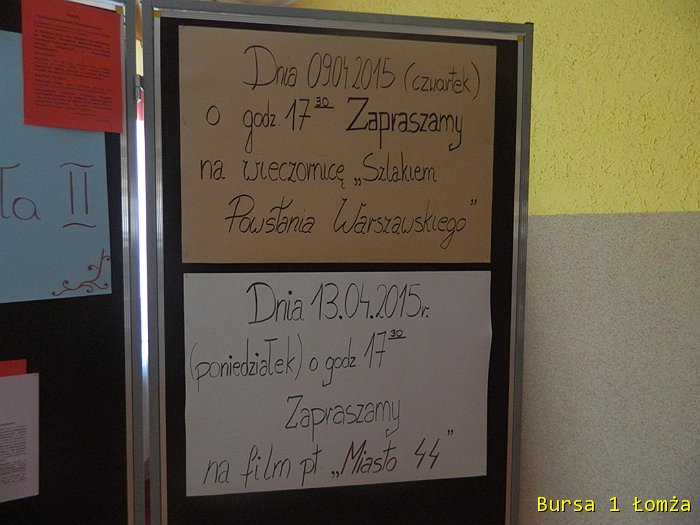 ła II
Dnia 09.04.2015 (czwartek)
o godz. 17 30 Zapraszamy
na wieczornicę „Szlakiem
Powstania Warszawskiego”
Dnia 13.04.2015r.
(poniedziałek) o godz. 17 30
Zapraszamy
na film pt. „Miasto 44”
Bursa 1 Łomża